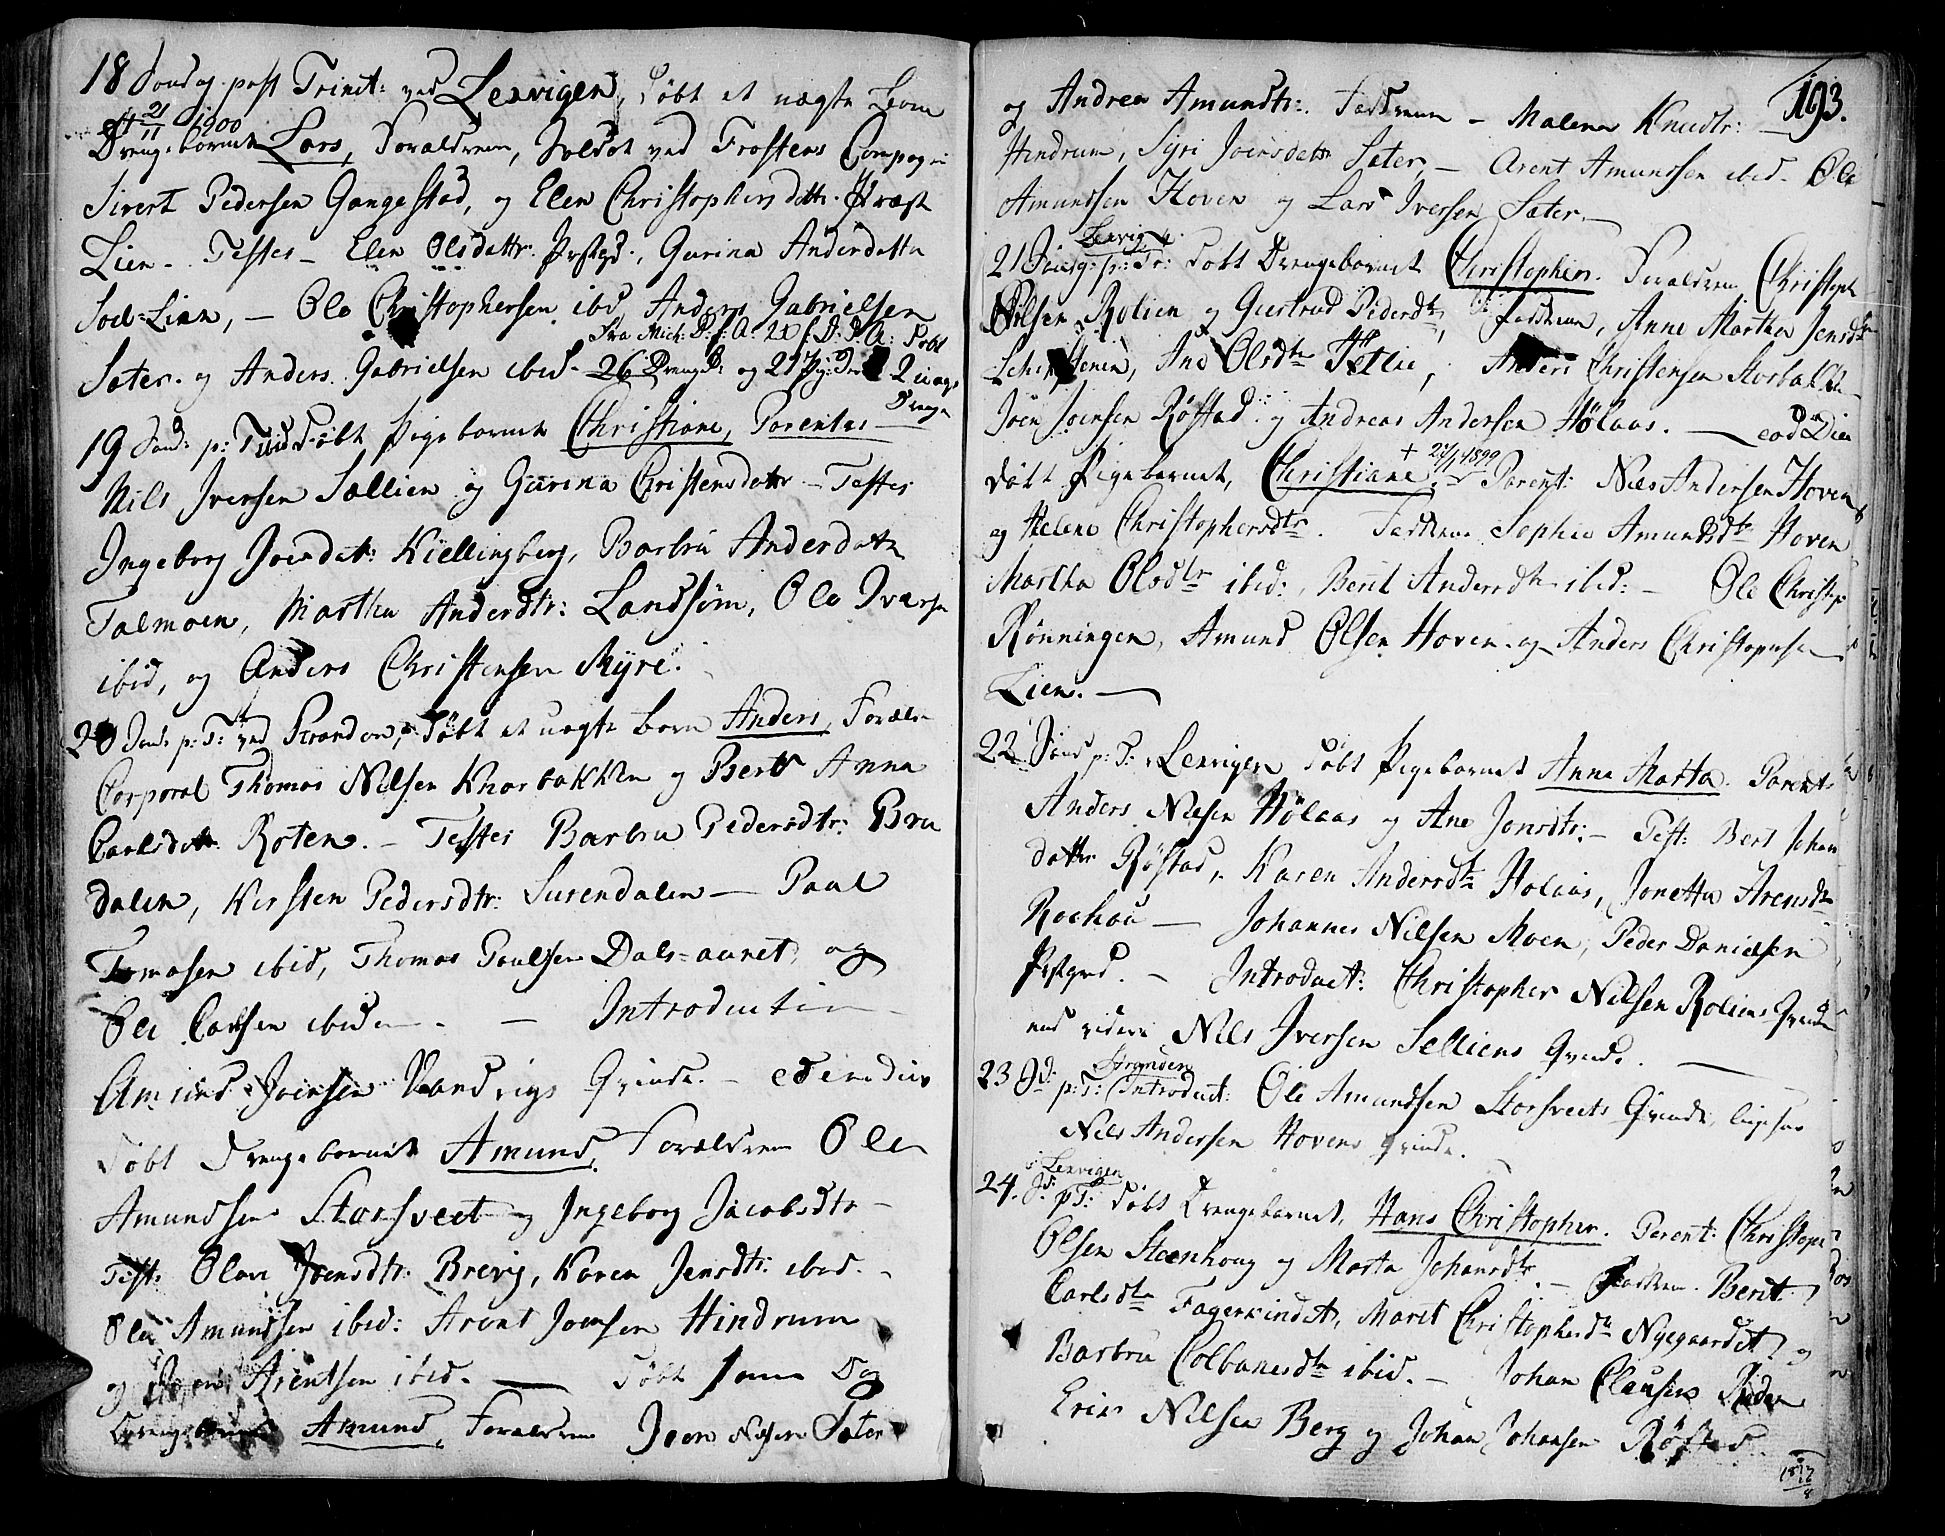 18 Sondag post Trinit: ved Lexvigen, Døbt et uægte
21/11 1900
Drengebarnet Lars, Forældrene, Soldat ved Frostens Compagni
Sivert Pedersen Gangestad, og Elen Christophersdattr.
Lien. Testes - Elen Olsdattr. Pstgd., Gurina Andersdatter
Sæl-Lien, - Ole Christophersen ibid Anders Gabrielsen
Fra Mich: D: f: A: 20 S: D: f: A: Døbt
Sæter. og Anders Gabrielsen ibid. 26 Drengeb: og 27 Pig: 2 uægte
Drenge
19 Sond: p: T. Døbt Pigebarnet Christiane, Parentes
Nils Iversen Sællien og Gurina Christensdattr - Testes
Ingeborg Joensdat: Kiellingberg, Barbru Andersdatter
Talmoen, Martha Andersdtr: Landsøm, Ole Iversen
ibid, og Anders Christensen Myre.
20 Sond: p: T: ved Stranden, Døbt et uægte barn Anders, Foræld:
Corporal Thomas Nilsen Knarbakken og Berit Anna
Carlsdattr. Roten. - Testes Barbru Pedersdtr: Bru
dalen, Kirsten Pedersdtr: Surendalen - Paul
Tomasen ibid, Thomas Paulsen Dals=auret, og
Ole Carlsen ibidem. - Introductio
Amund Joensen Vandvigs Qvinde. - eodem die
Døbt Drengebarnet Amund, Forældrene Ole
Amundsen Storsveet og Ingeborg Jacobsdtr -
Test: Olave Joensdtr: Brevig, Karen Jensdtr: ibid. -
Ole Amundsen ibid: Arent Joensen Hindrum
og Arentsen ibid. - Døbt samme Dag
Drengebarnet Amund, Forældrene Joen Nilsen Sæter

193.
og Andrea Amundsdtr:. Fadderne - Malena Knudtr:
Hindrum, Syri Joensdattr Sæter, - Arent Amundsen ibid. Ole
Amundsen Hoven og Lars Iversen Sæter. -
Lexvig
21 Søndg: p: Tr: Døbt Drengebarnet Christopher. Forældrene Christoph
Nilsen Rolien og Gurstrud Pedersdtr, Fadderne, Anne Martha Jensdtr
Ane Olsdtr Anders Christensen Storbakken
Joen Joensen Røstad og Andreas Andersen Hølaas. - eod Die
+ 24/1 1899
døbt Pigebarnet, Christiane. Parent: Niels Andersen Hoven
og Helene Christophersdtr. Fadderne Sophie Amundsdtr Hoven
Martha Olsdtr ibid:, Berit Andersdtr ibid: - Ole Christop:
Rønningen, Amund Olsen Hoven og Anders Christophersen
Lien. -
22 Sond p: T: Lexvigen Døbt Pigebarnet Anne Marta. Parent:
Anders Nilsen Hølaas og Ane Jonsdtr: - Test: Berit Johan
dattr Røstad, Karen Andersdtr Holaas, Jonetta Arensdtr
Rochau - Johannes Nilsen Moen, Peder Danielsen
Pstgrd. - Introduct: Christopher Nilsen Roliens Qvinde
end videre Nils Iversen Selliens Qvinde. -
Stranden
23 Sd: p: T: Introduct: Ole Amundsen Storsveets Qvinde, ligesaa
Nils Andersen Hovens Qvinde.
i Lexvigen
24. Sd: p T: Døbt Drengebarnet, Hans Christopher. Parent: Christoph
Olsen Steenhoug og Marta Johansdtr. - Fadderne. Berit
Carlsdtr Fagervindet, Maret Christophersdtr Nygaardet, og
Barbru Colbanesdtr ibid. - Johan Clausen
Erik Nilsen Berg og Johan Johansen Røstad.